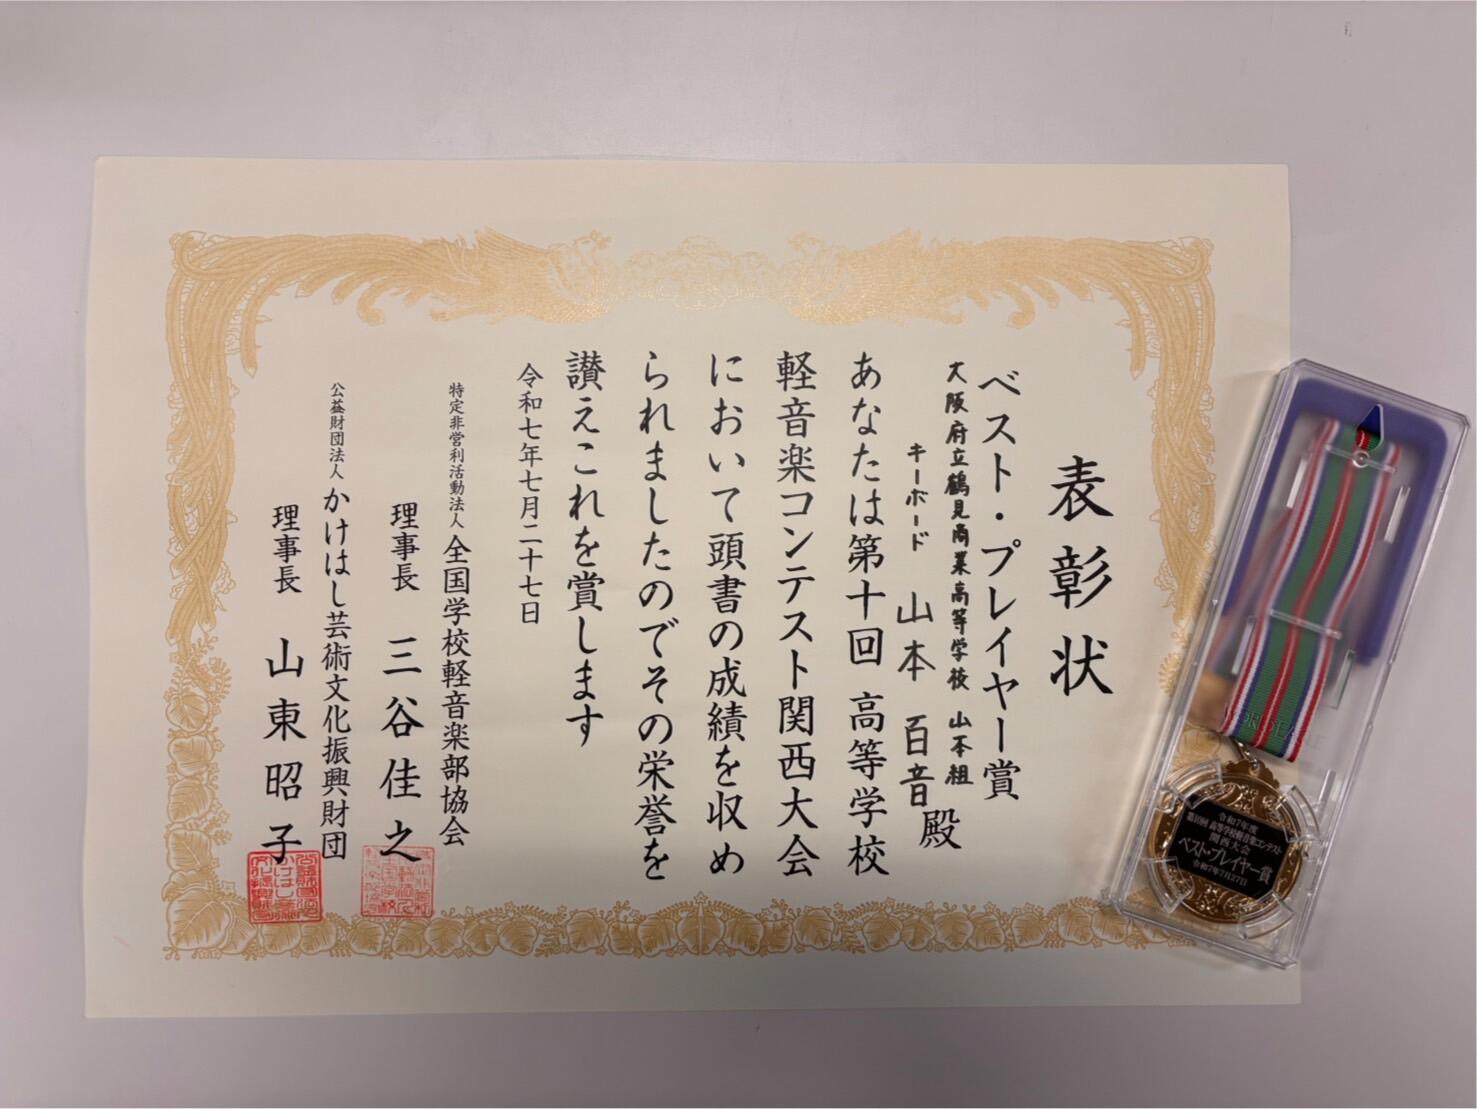 表彰状
ベスト・プレイヤー賞
大阪府立鶴見商業高等学校 山本組
キーボード 山本 百音 殿
あなたは第十回 高等学校
軽音楽コンテスト関西大会
において頭書の成績を収め
られましたのでその栄誉を
讃えこれを賞します
令和七年七月二十七日
特定非営利活動法人 全国学校軽音楽部協会
理事長 三谷佳之
公益財団法人 かけはし芸術文化振興財団
理事長 山東昭子
令和7年度
第10回 高等学校軽音楽コンテスト
関西大会
ベスト・プレイヤー賞
令和7年7月27日